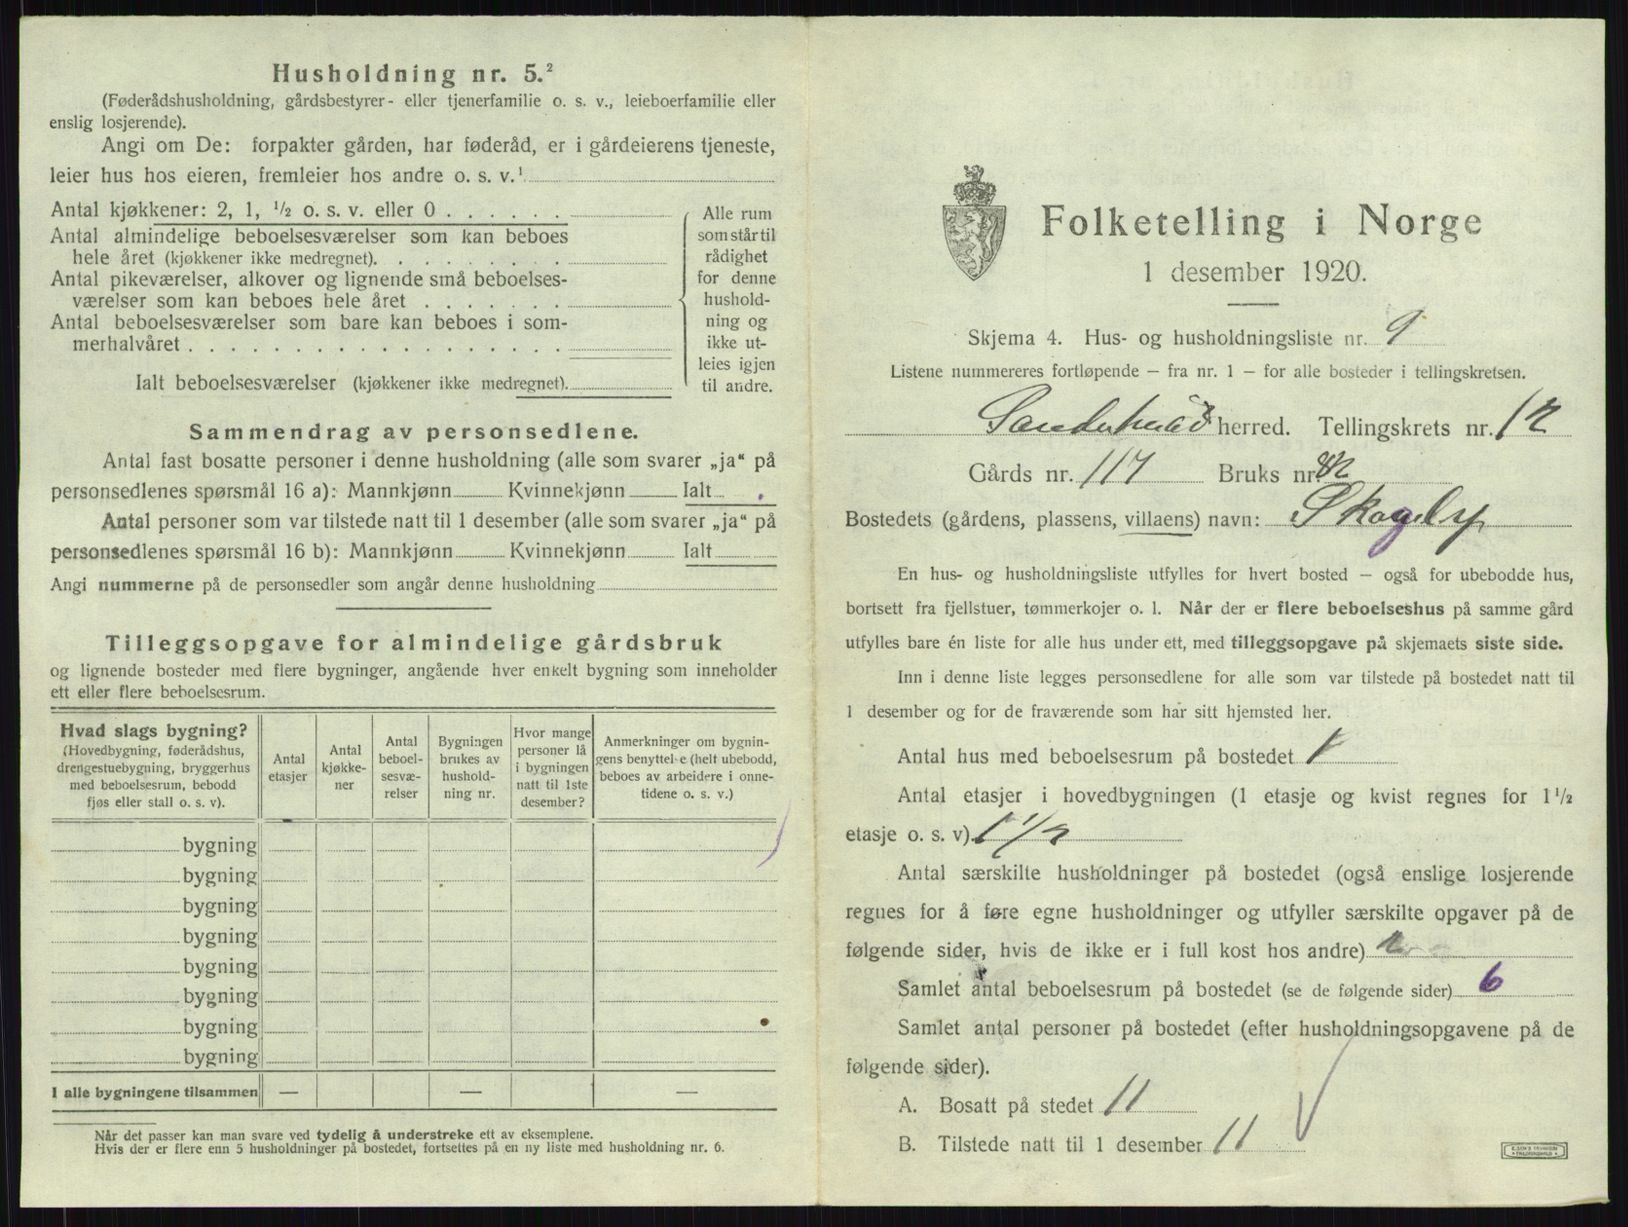 Husholdning nr. 5.²
(Føderådshusholdning, gårdsbestyrer- eller tjenerfamilie o. s. v., leieboerfamilie eller
enslig losjerende).
Angi om De: forpakter gården, har føderåd, er i gårdeierens tjeneste,
leier hus hos eieren, fremleier hos andre o. s. v.¹
Antal kjøkkener: 2, 1, ½ o. s. v. eller 0
Antal almindelige beboelsesværelser som kan beboes
hele året (kjøkkener ikke medregnet).
Antal pikeværelser, alkover og lignende små beboelses-
værelser som kan beboes hele året
Antal beboelsesværelser som bare kan beboes i som-
merhalvåret
Ialt beboelsesværelser (kjøkkener ikke medregnet).
Alle rum
som står til
rådighet
for denne
hushold-
ning og
ikke ut-
leies igjen
til andre.
Sammendrag av personsedlene.
Antal fast bosatte personer i denne husholdning (alle som svarer „ja“ på
personsedlenes spørsmål 16 a): Mannkjønn Kvinnekjønn Ialt
Antal personer som var tilstede natt til 1 desember (alle som svarer „ja“ på
personsedlenes spørsmål 16 b): Mannkjønn Kvinnekjønn Ialt
Angi nummerne på de personsedler som angår denne husholdning
Tilleggsopgave for almindelige gårdsbruk
og lignende bosteder med flere bygninger, angående hver enkelt bygning som inneholder
ett eller flere beboelsesrum.
Hvad slags bygning?
(Hovedbygning, føderådshus,
drengestuebygning, bryggerhus
med beboelsesrum, bebodd
fjøs eller stall o. s. v).
Antal
etasjer
Antal
kjøkke-
ner
Antal
beboel-
sesvæ-
relser
Bygningen
brukes av
hushold-
ning nr.
Hvor mange
personer lå
i bygningen
natt til 1ste
desember?
Anmerkninger om bygnin-
gens benyttelse (helt ubebodd,
beboes av arbeidere i onne-
tidene o. s. v.)
bygning
bygning
bygning
bygning
bygning
bygning
bygning
bygning
I alle bygningene tilsammen — — —
Når det passer kan man svare ved tydelig å understreke ett av eksemplene.
Hvis der er flere enn 5 husholdninger på bostedet, fortsettes på en ny liste med husholdning nr. 6.
Folketelling i Norge
1 desember 1920.
Skjema 4. Hus- og husholdningsliste nr. 9
Listene nummereres fortløpende — fra nr. 1 — for alle bosteder i tellingskretsen.
Sandeherad herred. Tellingskrets nr. 12
Gårds nr. 117 Bruks nr.
Bostedets (gårdens, plassens, villaens) navn: Skogly
En hus- og husholdningsliste utfylles for hvert bosted — også for ubebodde hus,
bortsett fra fjellstuer, tømmerkojer o. l. Når der er flere beboelseshus på samme gård
utfylles bare én liste for alle hus under ett, med tilleggsopgave på skjemaets siste side.
Inn i denne liste legges personsedlene for alle som var tilstede på bostedet natt til
1 desember og for de fraværende som har sitt hjemsted her.
Antal hus med beboelsesrum på bostedet 1
Antal etasjer i hovedbygningen (1 etasje og kvist regnes for 1½
etasje o. s. v). 1 1/2
Antal særskilte husholdninger på bostedet (også enslige losjerende
regnes for å føre egne husholdninger og utfyller særskilte opgaver på de
følgende sider, hvis de ikke er i full kost hos andre) 2
Samlet antal beboelsesrum på bostedet (se de følgende sider) 6
Samlet antal personer på bostedet (efter husholdningsopgavene på de
følgende sider).
A. Bosatt på stedet 11
B. Tilstede natt til 1 desember 11